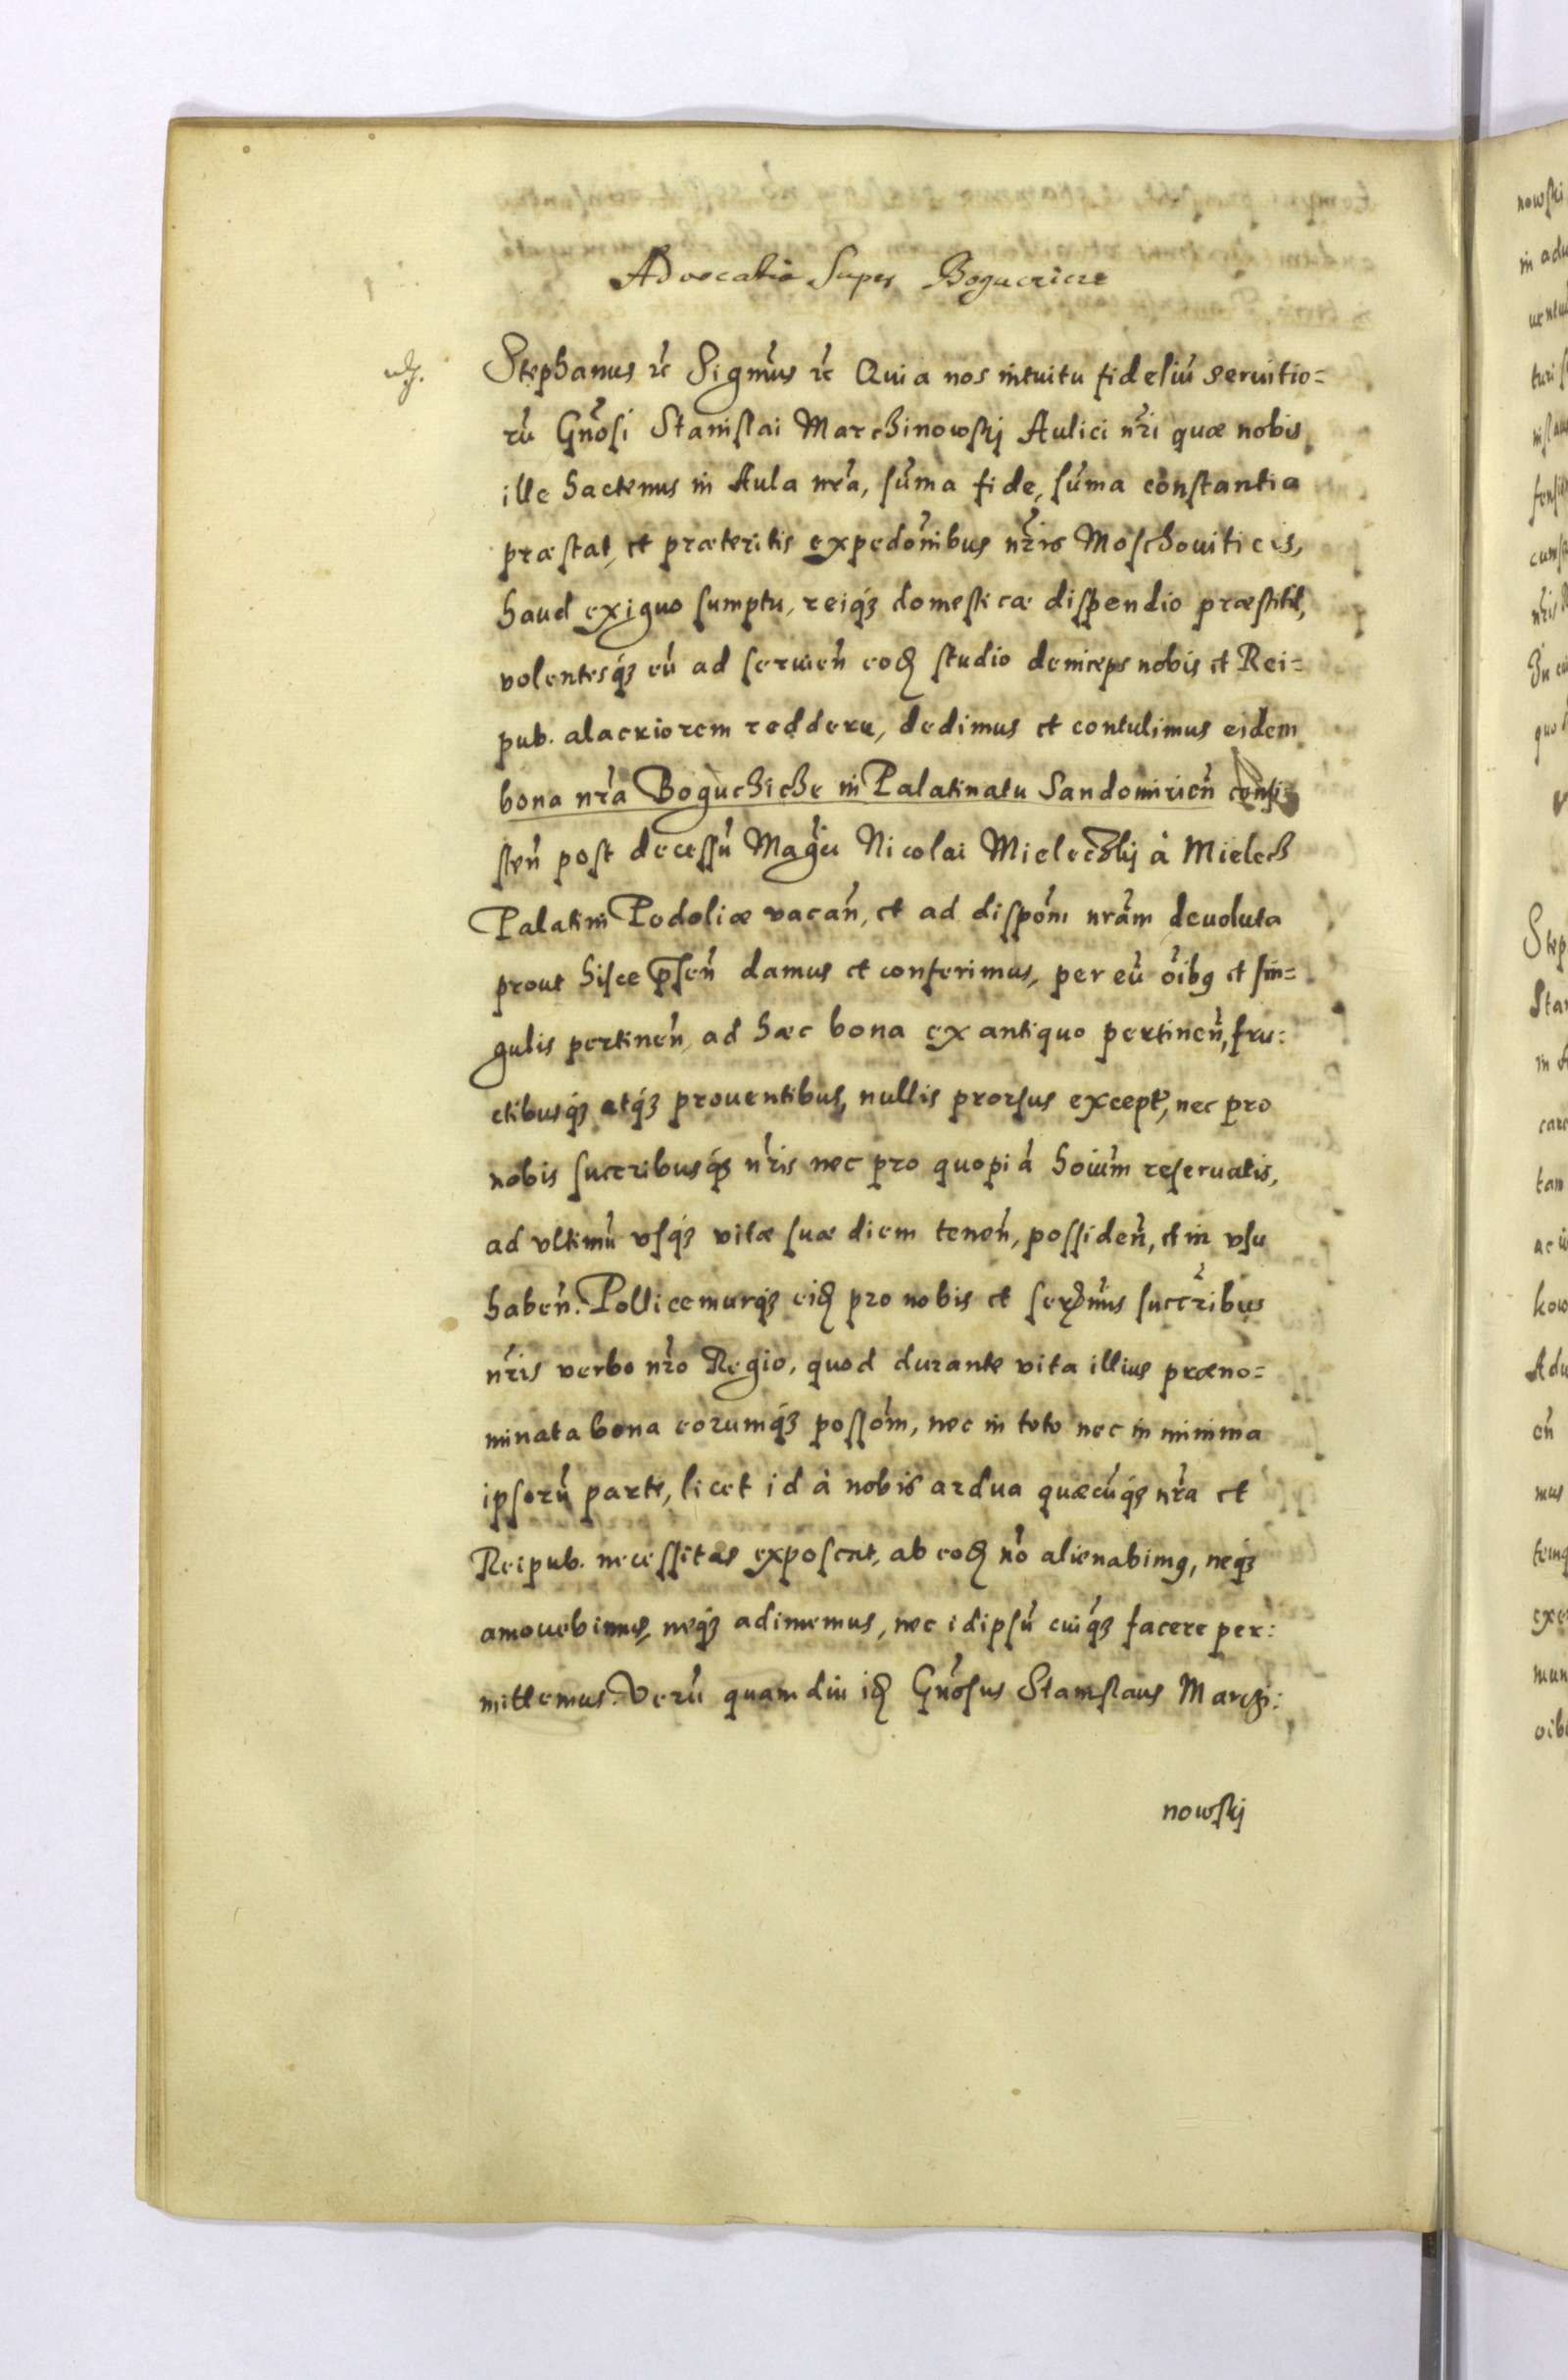 Advocatia Super Boguczicze
Stephanus ɾc̃ Signm̃us ɾc̃ Quia nos intuitu fideliũ seruitio=
rũ Gñosi Stanislai Marchinowskj Aulici nr̃i quæ nobis
ille hactenus in Aula nr̃a, sum̃a fide, sum̃a constantia
præstat, et præteritis expedõnibus nr̃is Moschouiticis,
haud exiguo sumptu, reiqꝫ domesticæ dispendio præstitit,
volentesqꝫ eũ ad seruien̄ eoꝺ̃ studio deinceps nobis et Rei=
pub. alacriorem reddere, dedimus et contulimus eidem
bona nr̃a Boguchiche in Palatinatu Sandomirien̄ consi=
sten̄ post decessũ Mag̃ci Nicolai Mieleczkij à Mielecz
Palatini Podoliæ vacan̄, et ad dispõm nrãm deuoluta
prout hisce p̃sen̄ damus et conferimus, per eũ õibꝰ et sin=
gulis pertinen̄, ad hæc bona ex antiquo pertinen̄, fru:
ctibusqꝫ atqꝫ prouentibus, nullis prorsus except̃, nec pro
nobis succribusqꝫ nr̃is nec pro quopiã hoiũm reseruatis,
ad vltimũ vsqꝫ vitæ suæ diem tenen̄, possiden̄, et in vsu
haben̄. Pollicemurqꝫ eiꝺ̃ pro nobis et serẽmis succr̃ibus
nr̃is verbo nr̃o Regio, quod durante vita illius præno=
minata bona eorumqꝫ possõm, nec in toto nec in minima
ipsorũ parte, licet id à nobis ardua quæcũqꝫ nr̃a et
Reipub. necessitas exposcat, ab eoꝺ̃ nõ alienabimꝰ, neqꝫ
amouebimus, neqꝫ adimemus, nec idipsũ cuiqꝫ facere per:
mittemus. Verũ quamdiu iꝺ̃ Gñosus Stanislaus Marczi:
nowskj